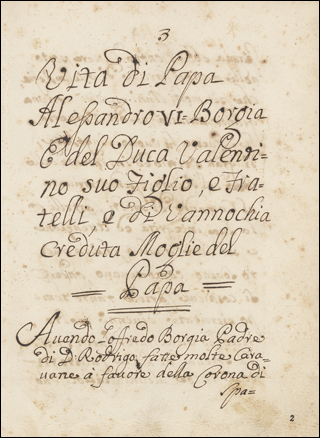 3
Vita di Papa
Alessandro VI = Borgia
E del Duca Valenti=
no suo Figlio, e Fra=
telli, e di Vannochia
Creduta Moglie del
= Papa =
Auendo Loffredo Borgia Padre
di D. Rodrigo fatte molte Cara=
uane à fauore della Corona di
Spa=
2